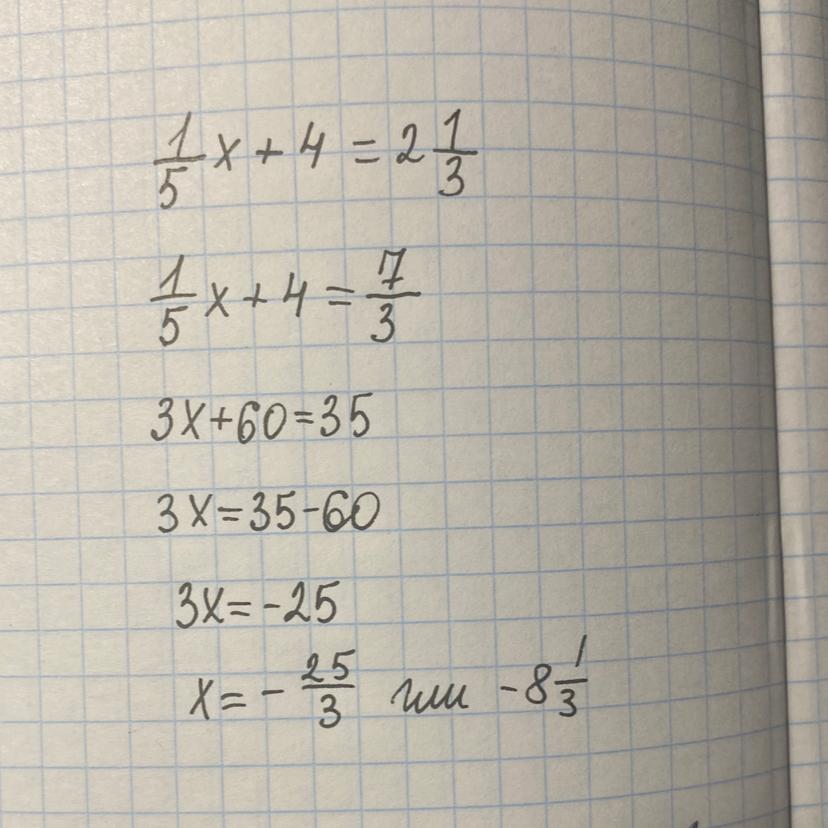 1/5 x + 4 = 2 1/3
1/5 x + 4 = 7/3
3x+60=35
3x=35-60
3x=-25
x=-25/3 или -8 1/3